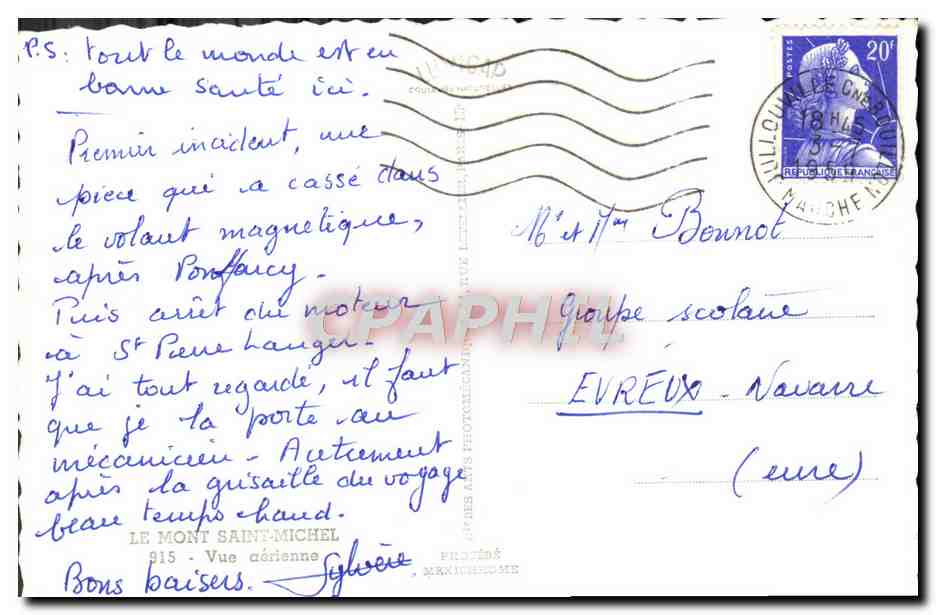 P.S: tout le monde est en
bonne santé ici.
Premier incident, une
pièce qui a cassé dans
le volant magnétique,
après Pontfarcy.
Puis arrêt du moteur
à St Pierre Langer.
J'ai tout regardé, il faut
que je la porte au
mécanicien - Autrement
après la grisaille du voyage
beau temps chaud.
Bons baisers. Sylvère
LE MONT SAINT-MICHEL
915 - Vue aérienne
CPAPHIL
DES ARTS PHOTOMÉCANIQUES
PROTÉGÉ
MEXICHROME
POSTES
20F
REPUBLIQUE FRANÇAISE
JULLOUVILLE
18H45
MANCHE
Mr et Mme Bonnot
Groupe scolaire
EVREUX - Navarre
(eure)